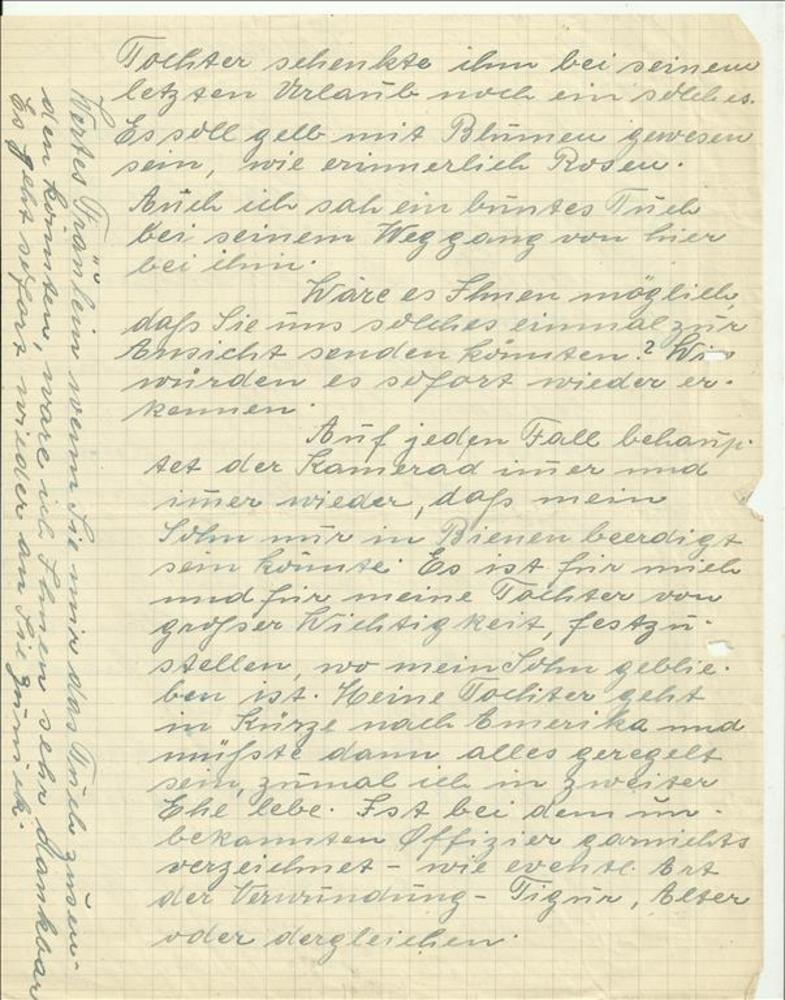 Tochter schenkte ihm bei seinem
letzten Urlaub noch ein solches.
Es soll gelb mit Blumen gewesen
sein, wie erinnerlich Rosen.
Auch ich sah ein buntes Tuch
bei seinem Weggang von hier
bei ihm.
Wäre es Ihnen möglich,
daß Sie uns solches einmal zur
Ansicht senden könnten? Wir
würden es sofort wieder er-
kennen.
Auf jeden Fall behaup-
tet der Kamerad im̅er und
im̅er wieder, daß mein
Sohn nur in Bienen beerdigt
sein könnte. Es ist für mich
und für meine Tochter von
großer Wichtigkeit, festzu-
stellen, wo mein Sohn geblie-
ben ist. Meine Tochter geht
in Kürze nach Amerika und
müßte dann alles geregelt
sein, zumal ich in zweiter
Ehe lebe. Ist bei dem un-
bekannten Offizier garnichts
verzeichnet - wie eventl. Art
der Verwundung - Figur, Alter
oder dergleichen.
Wertes Fräulein wenn Sie mir das Tuch zusen-
den könnten, wäre ich Ihnen sehr dankbar
Es geht sofort wieder an Sie zurück.